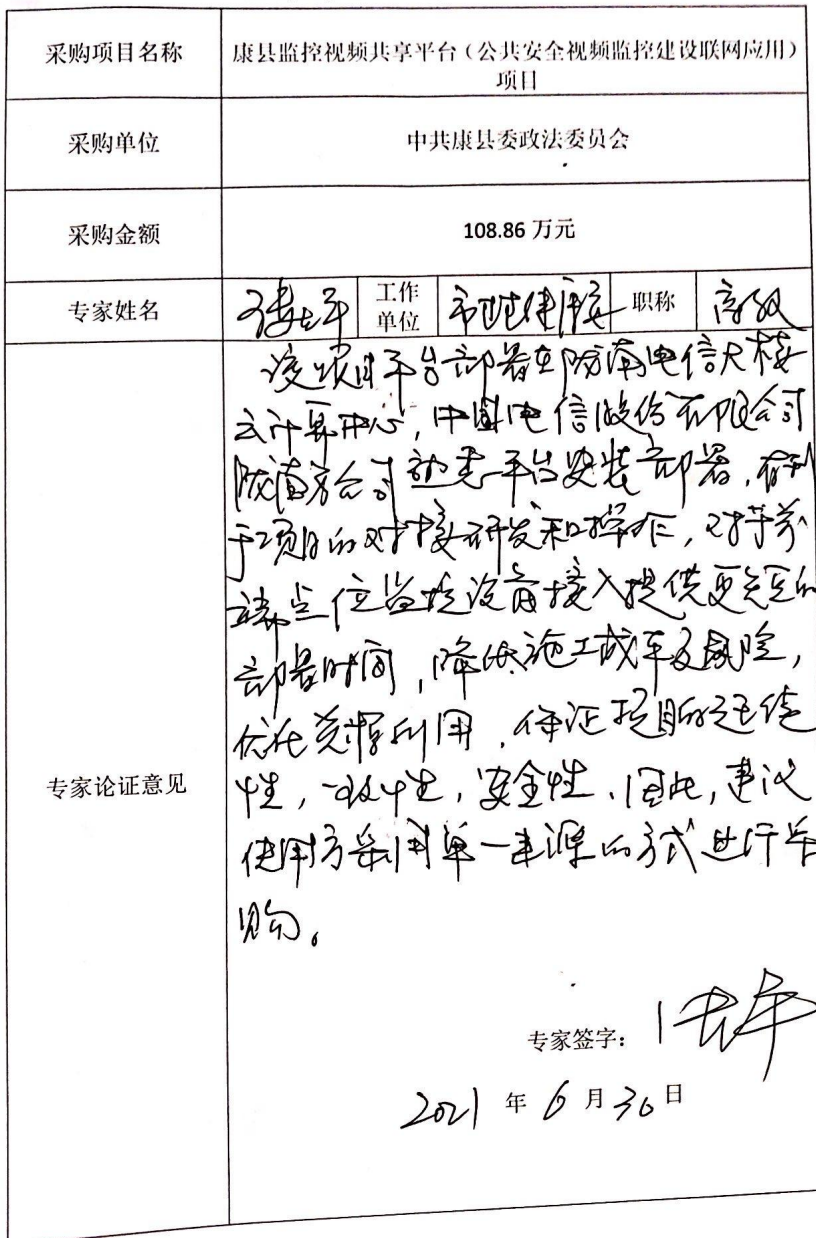 采购项目名称
康县监控视频共享平台（公共安全视频监控建设联网应用）
项目
采购单位
中共康县委政法委员会
采购金额
108.86 万元
专家姓名
工作
单位
职称
高级
专家论证意见
该项目平台部署在陇南电信大楼
云计算中心，中国电信股份有限公司
陇南分公司熟悉平台安装部署，有利
于项目的对接研发和操作，对于前
端点位监控设备接入提供更短的
部署时间，降低施工成本及风险，
优化资源利用，保证项目的连续
性，一致性，安全性，因此，建议
使用方采用单一来源的方式进行采
购。
专家签字：
2021 年 6 月 30 日